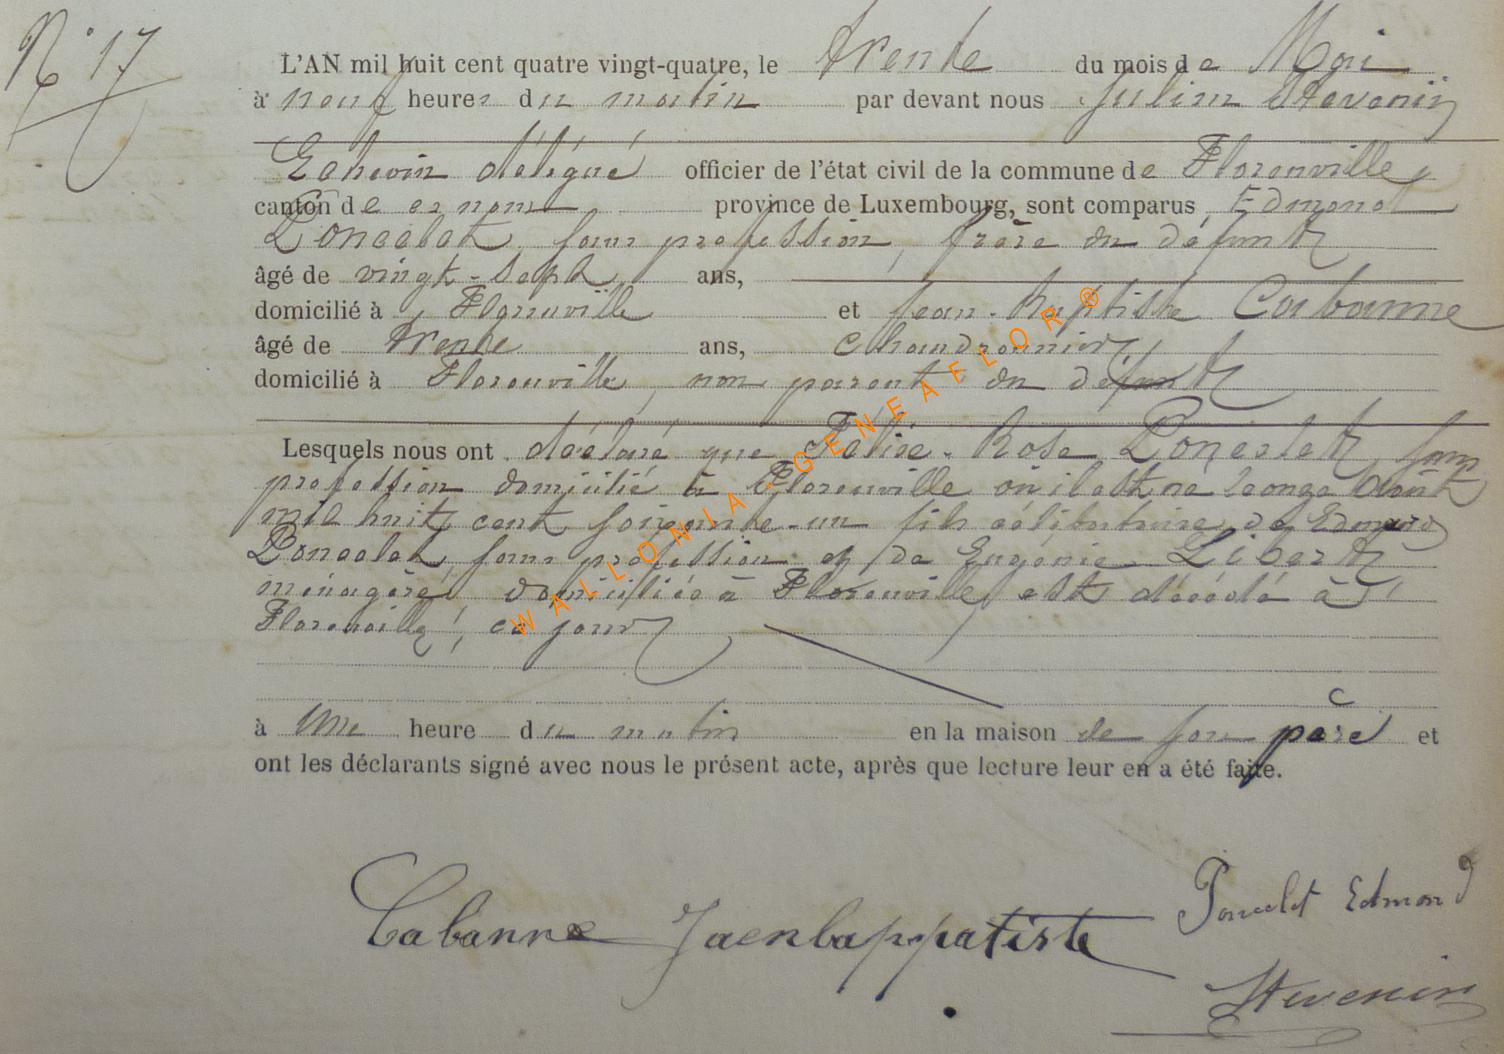 N° 17
L'AN mil huit cent quatre vingt-quatre, le trente du mois de Mai
à neuf heures du matin par devant nous Julien Stevenin
Echevin délégué officier de l'état civil de la commune de Florenville
canton de ce nom province de Luxembourg, sont comparus Edmond
Poncelet, sans profession, frère du défunt
âgé de vingt-sept ans,
domicilié à Florenville et Jean-Baptiste Cabanne
âgé de trente ans, Chaudronnier
domicilié à Florenville, non parent du défunt
Lesquels nous ont déclaré que Rose Poncelet, sans
profession domicilié à Florenville où il est né le onze Août
mil huit cent soixante-un fils célibataire de Edmond
Poncelet, sans profession et de Eugénie Libert
ménagère, domiciliée à Florenville, est décédé à
Florenville, ce jour
à une heure du matin en la maison de son père et
ont les déclarants signé avec nous le présent acte, après que lecture leur en a été faite.
WALLONIA-GENEAELOR®
Cabanne Jaenbappatiste
Poncelet Edmond
Stevenin